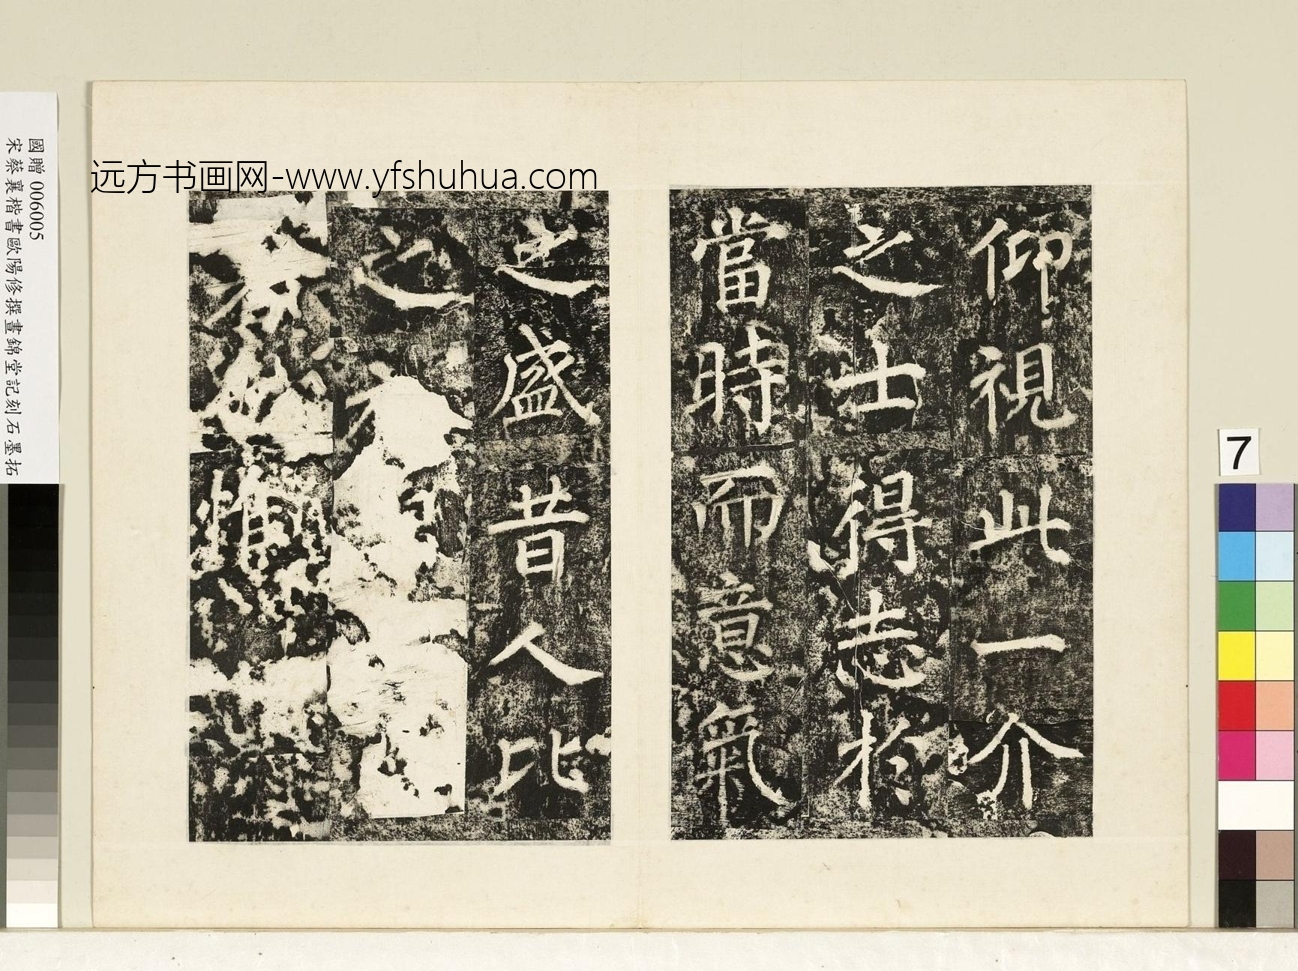 國贈006005
宋蔡襄楷書歐陽修撰晝錦堂記刻石墨拓
远方书画网-www.yfshuhua.com
仰視此一介
之士得志於
當時而意氣
之盛昔人比
之衣
7